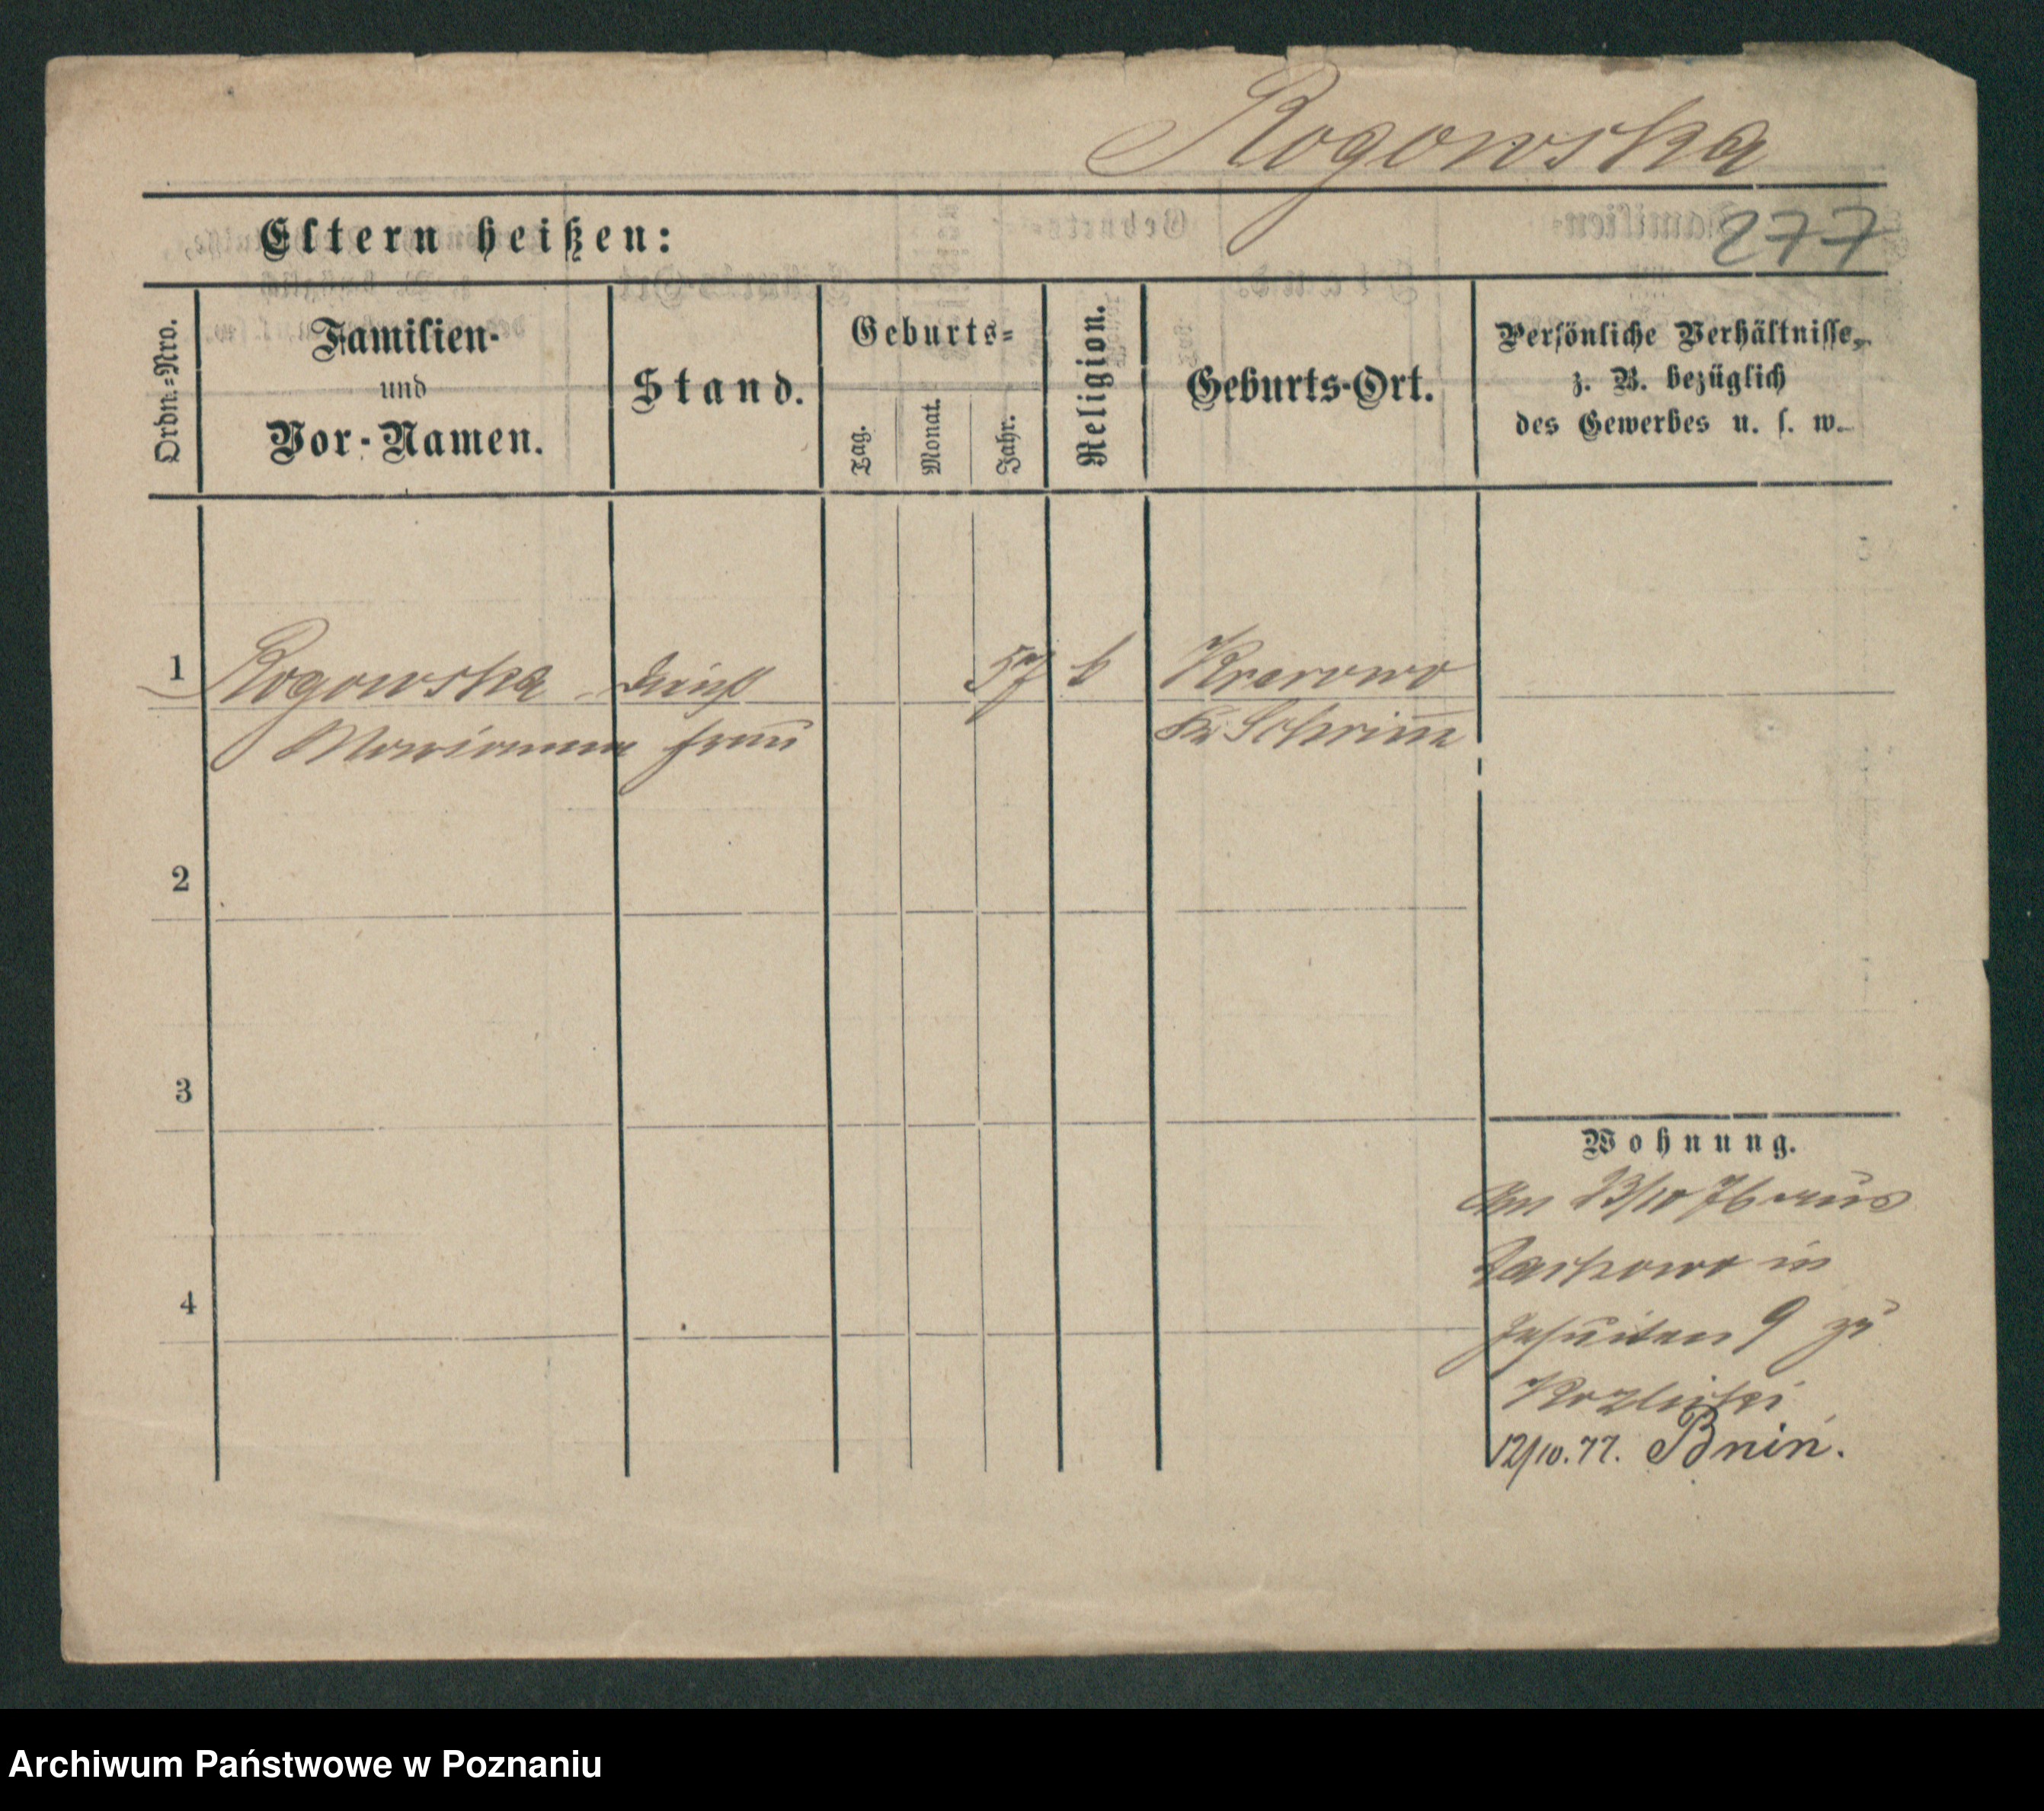 Rogowska
277
Eltern heißen:
Ordn.=Nro.
Familien-
und
Vor-Namen.
Stand.
Geburts=
Tag.
Monat.
Jahr.
Religion.
Geburts-Ort.
Persönliche Verhältnisse,
z. B. bezüglich
des Gewerbes u. s. w.
1 Rogowska Dienst 57 k
Marianna frau Kr Schrimm
2
3
4
Wohnung.
Am 23/10 76 aus
in
Jesuiten 9 zu
12/10. 77. Bnin.
Archiwum Państwowe w Poznaniu